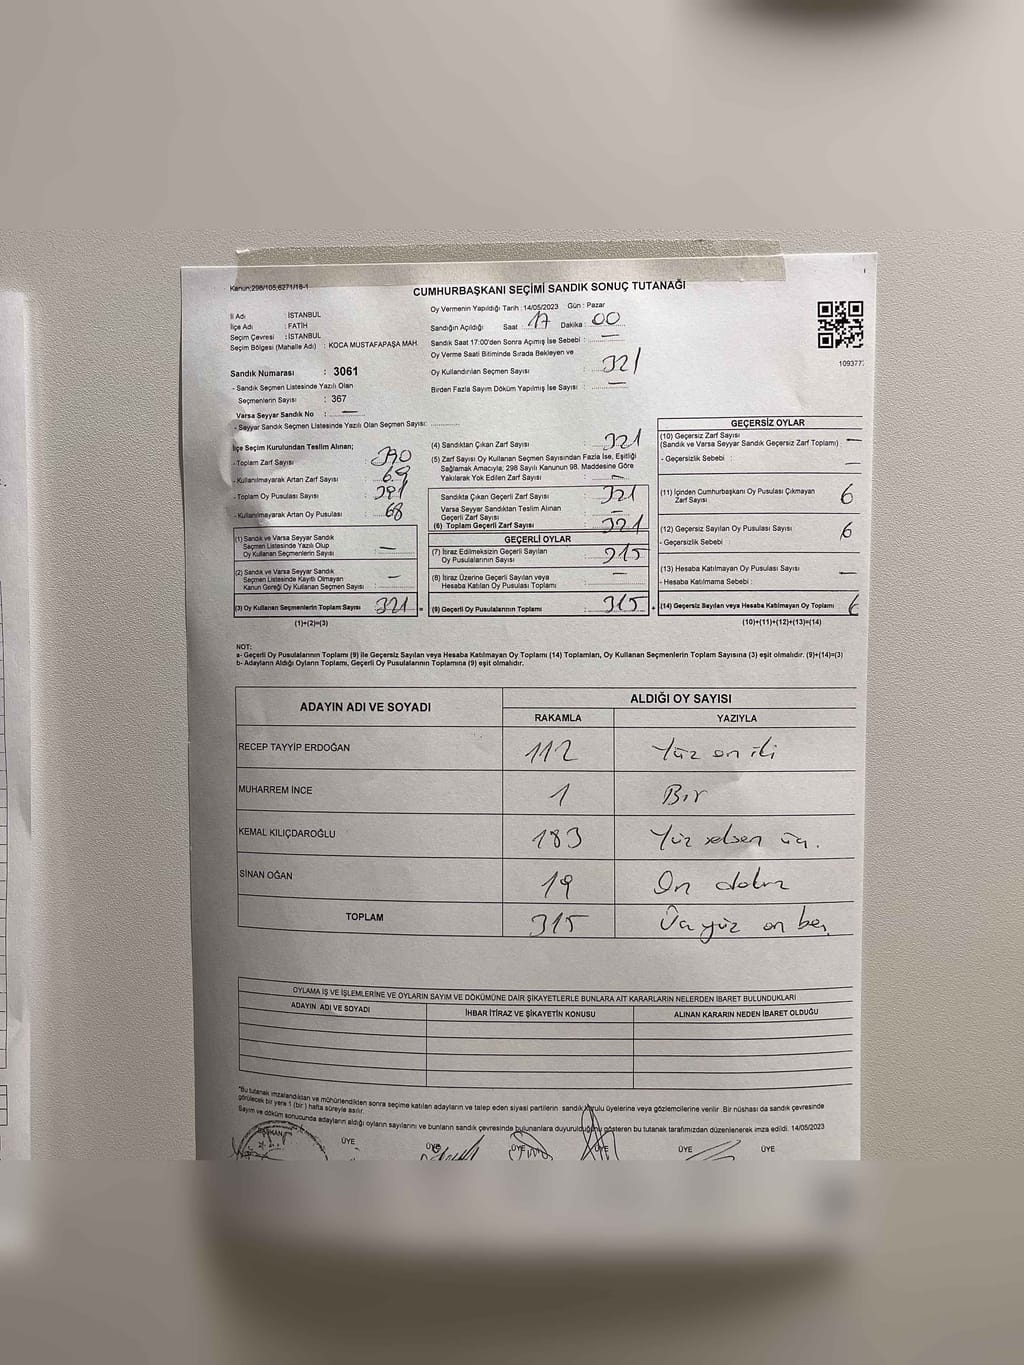 Kanun;298/105,6271/18-1
CUMHURBAŞKANI SEÇİMİ SANDIK SONUÇ TUTANAĞI
İl Adı : İSTANBUL
İlçe Adı : FATİH
Seçim Çevresi : İSTANBUL
Seçim Bölgesi (Mahalle Adı) : KOCA MUSTAFAPAŞA MAH.
Sandık Numarası : 3061
- Sandık Seçmen Listesinde Yazılı Olan
Seçmenlerin Sayısı : 367
Varsa Seyyar Sandık No : —
- Seyyar Sandık Seçmen Listesinde Yazılı Olan Seçmen Sayısı:
Oy Vermenin Yapıldığı Tarih : 14/05/2023 Gün : Pazar
Sandığın Açıldığı Saat 17 Dakika : 00
Sandık Saat 17:00'den Sonra Açmış İse Sebebi : —
Oy Verme Saati Bitiminde Sırada Bekleyen ve
Oy Kullandırılan Seçmen Sayısı : 321
Birden Fazla Sayım Döküm Yapılmış İse Sayısı : —
109377
İlçe Seçim Kurulundan Teslim Alınan;
- Toplam Zarf Sayısı : 390
- Kullanılmayarak Artan Zarf Sayısı : 69
- Toplam Oy Pusulası Sayısı :
- Kullanılmayarak Artan Oy Pusulası : 68
(1) Sandık ve Varsa Seyyar Sandık
Seçmen Listesinde Yazılı Olup
Oy Kullanan Seçmenlerin Sayısı : —
(2) Sandık ve Varsa Seyyar Sandık
Seçmen Listesinde Kayıtlı Olmayan
Kanun Gereği Oy Kullanan Seçmen Sayısı : —
(3) Oy Kullanan Seçmenlerin Toplam Sayısı 321
(1)+(2)=(3)
(4) Sandıktan Çıkan Zarf Sayısı : 321
(5) Zarf Sayısı Oy Kullanan Seçmen Sayısından Fazla İse, Eşitliği
Sağlamak Amacıyla; 298 Sayılı Kanunun 98. Maddesine Göre
Yakılarak Yok Edilen Zarf Sayısı : —
Sandıkta Çıkan Geçerli Zarf Sayısı : 321
Varsa Seyyar Sandıktan Teslim Alınan
Geçerli Zarf Sayısı : —
(6) Toplam Geçerli Zarf Sayısı : 321
GEÇERLİ OYLAR
(7) İtiraz Edilmeksizin Geçerli Sayılan
Oy Pusulalarının Sayısı : 315
(8) İtiraz Üzerine Geçerli Sayılan veya
Hesaba Katılan Oy Pusulası Toplamı : —
(9) Geçerli Oy Pusulalarının Toplamı : 315
GEÇERSİZ OYLAR
(10) Geçersiz Zarf Sayısı
(Sandık ve Varsa Seyyar Sandık Geçersiz Zarf Toplamı) —
- Geçersizlik Sebebi : —
(11) İçinden Cumhurbaşkanı Oy Pusulası Çıkmayan
Zarf Sayısı 6
(12) Geçersiz Sayılan Oy Pusulası Sayısı 6
- Geçersizlik Sebebi :
(13) Hesaba Katılmayan Oy Pusulası Sayısı —
- Hesaba Katılmama Sebebi :
(14) Geçersiz Sayılan veya Hesaba Katılmayan Oy Toplamı 6
(10)+(11)+(12)+(13)=(14)
NOT:
a- Geçerli Oy Pusulalarının Toplamı (9) ile Geçersiz Sayılan veya Hesaba Katılmayan Oy Toplamı (14) Toplamları, Oy Kullanan Seçmenlerin Toplam Sayısına (3) eşit olmalıdır. (9)+(14)=(3)
b- Adayların Aldığı Oyların Toplamı, Geçerli Oy Pusulalarının Toplamına (9) eşit olmalıdır.
ADAYIN ADI VE SOYADI
ALDIĞI OY SAYISI
RAKAMLA YAZIYLA
RECEP TAYYİP ERDOĞAN 112 Yüz on iki
MUHARREM İNCE 1 Bir
KEMAL KILIÇDAROĞLU 183 Yüz seksen üç.
SİNAN OĞAN 19 On dokuz
TOPLAM 315 Üç yüz on beş
OYLAMA İŞ VE İŞLEMLERİNE VE OYLARIN SAYIM VE DÖKÜMÜNE DAİR ŞİKAYETLERLE BUNLARA AİT KARARLARIN NELERDEN İBARET BULUNDUKLARI
ADAYIN ADI VE SOYADI İHBAR İTİRAZ VE ŞİKAYETİN KONUSU ALINAN KARARIN NEDEN İBARET OLDUĞU
"Bu tutanak imzalandıktan ve mühürlendikten sonra seçime katılan adayların ve talep eden siyasi partilerin sandık kurulu üyelerine veya gözlemcilerine verilir. Bir nüshası da sandık çevresinde
görülecek bir yere 1 (bir) hafta süreyle asılır.
Sayım ve döküm sonucunda adayların aldığı oyların sayılarını ve bunların sandık çevresinde bulunanlara duyurulduğunu gösteren bu tutanak tarafımızdan düzenlenerek imza edildi. 14/05/2023
BAŞKAN ÜYE ÜYE ÜYE ÜYE ÜYE ÜYE